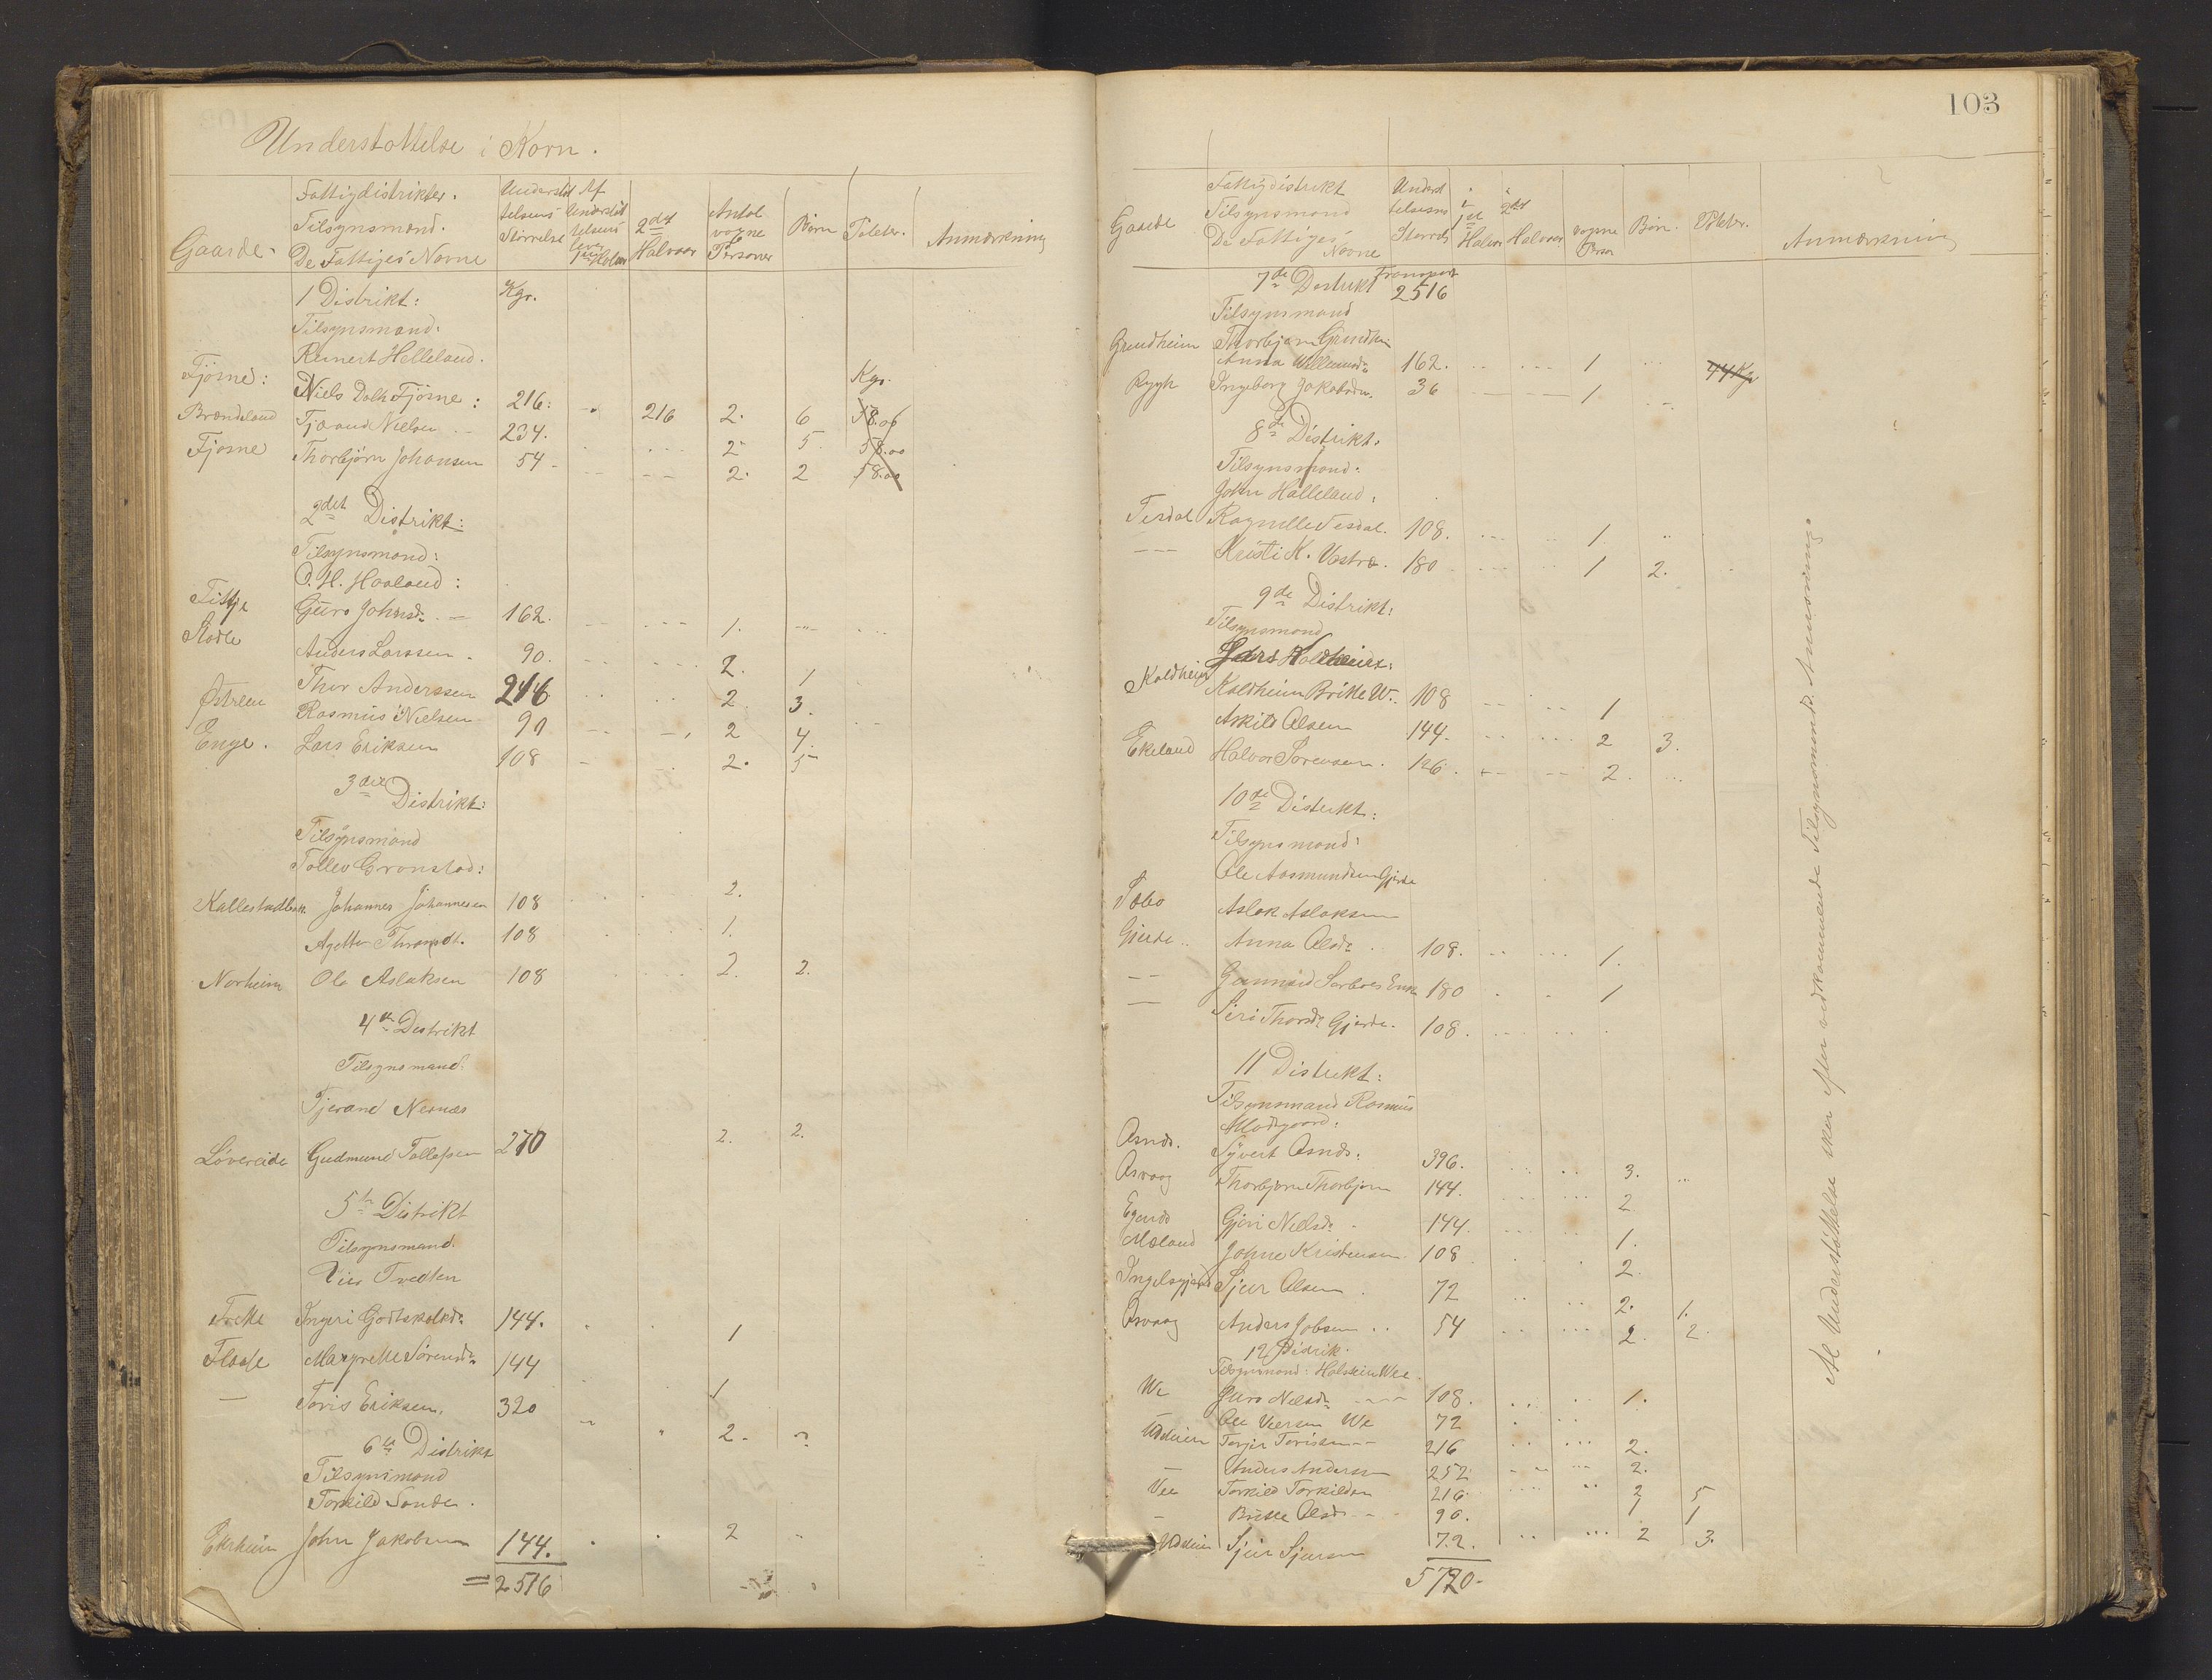 Understøttelse i Korn.
Gaarde.
Fattigdistrikter.
Tilsynsmænd.
De Fattiges Navne
Understøt
telsens
Størrelse
Af
Understøt
telsens
2det
Halvaar
Antal
voxne
Personer
Børn
Poteter.
Anmærkning
1 Distrikt: Kgr.
Tilsynsmand:
Reinert Helleland.
Kgr.
Fjøsne: Niels Dalh Fjøsne: 216: 216 2. 6 58.00
Brændeland Tjærand Nielsen 234. 2 5 58.00
Fjøsne Thorbjørn Johansen 54 2. 2 58.00
2det Distrikt:
Tilsynsmand:
O. H. Haaland:
Guro Johnsd. 162. 1.
Stødle Anders Larssen. 90. 2. 1
Thor Anderssen 216 2. 3.
Østreim Rasmus Nielsen 90 2 4.
Enge. Lars Eriksen 108 2. 5
3die Distrikt:
Tilsynsmand
Tollev Grønstad:
Johannes Johannesen 108 2.
108 1.
Norheim Ola Aslaksen 108 2. 2.
4de Distrikt
Tilsynsmand:
Tjerand Nernæs
Løvereide Gudmund Tollefsen 270 2. 2.
5te Distrikt
Tilsynsmand.
Tvedten
Ingeri Godtskalksd. 144. 1
Margrethe Sørensd. 144 1
— Toris Eriksen. 320 2.
6te Distrikt
Tilsynsmand
Torkild Sande.
Ekrheim John Jakobsen 144. 2
= 2516
103
Gaarde
Fattigdistrikt
Tilsynsmænd
De Fattiges
Navne
Underst
telsens
Størrels
i
1st
Halvar
2det
Halvaar
voxne
Person
Børn.
Anmærkning
7de Distrikt Transport
2516
Tilsynsmand
Grindheim Thorbjørn Grindhe
Anna Willumsd. 162. 1 44 Kgr
Rygh Ingeborg Jakobsdr. 36 1
8de Distrikt.
Tilsynsmand:
John Hålleland.
Tesdal Ragnille Tesdal. 108. 1.
--- Kristi K. Vastre. 180 1 2.
9de Distrikt:
Tilsynsmand
Lars Koldheim:
Koldheim Koldheim Britte W. 108 1
Askild Olsen 144. 2 3.
Ekeland Halvor Sørensen. 126. 2.
10de Distrikt:
Tilsynsmand:
Ole Aasmundsen Gjerde
Sæbø Aslak Aslaksen
Gjerde Anna Olsd. 108. 1.
-- Enke 180 1
— Siri Thorsd. Gjerde. 108.
11 Distrikt:
Tilsynsmand Rasmus
Ølmedal.
Sjvert 396. 3.
Osvaag Thorbjørn Thorbjørn 144. 2
Gjøri Nielsd. 144. 1.
Mæland Johne Kristensen 108 2.
Sjur Olsen 72 2. 1.
Osvaag Anders Jobsen 54 2. 2.
12 Distrik.
Tilsynsmand: Halstein Wee
We Guro Nielsd. 108. 1.
Ole We 72
Torger Torisen 216 2.
Anders Andersen 252 2.
Vee Torkild Torkildsen 216 2 5
— Britte Olsd. 90. 1 1
Sjur Sjursen 72. 2 3.
5720.
Al Understøttelse sker efter vedkommende Tilsynsmands Anvisning